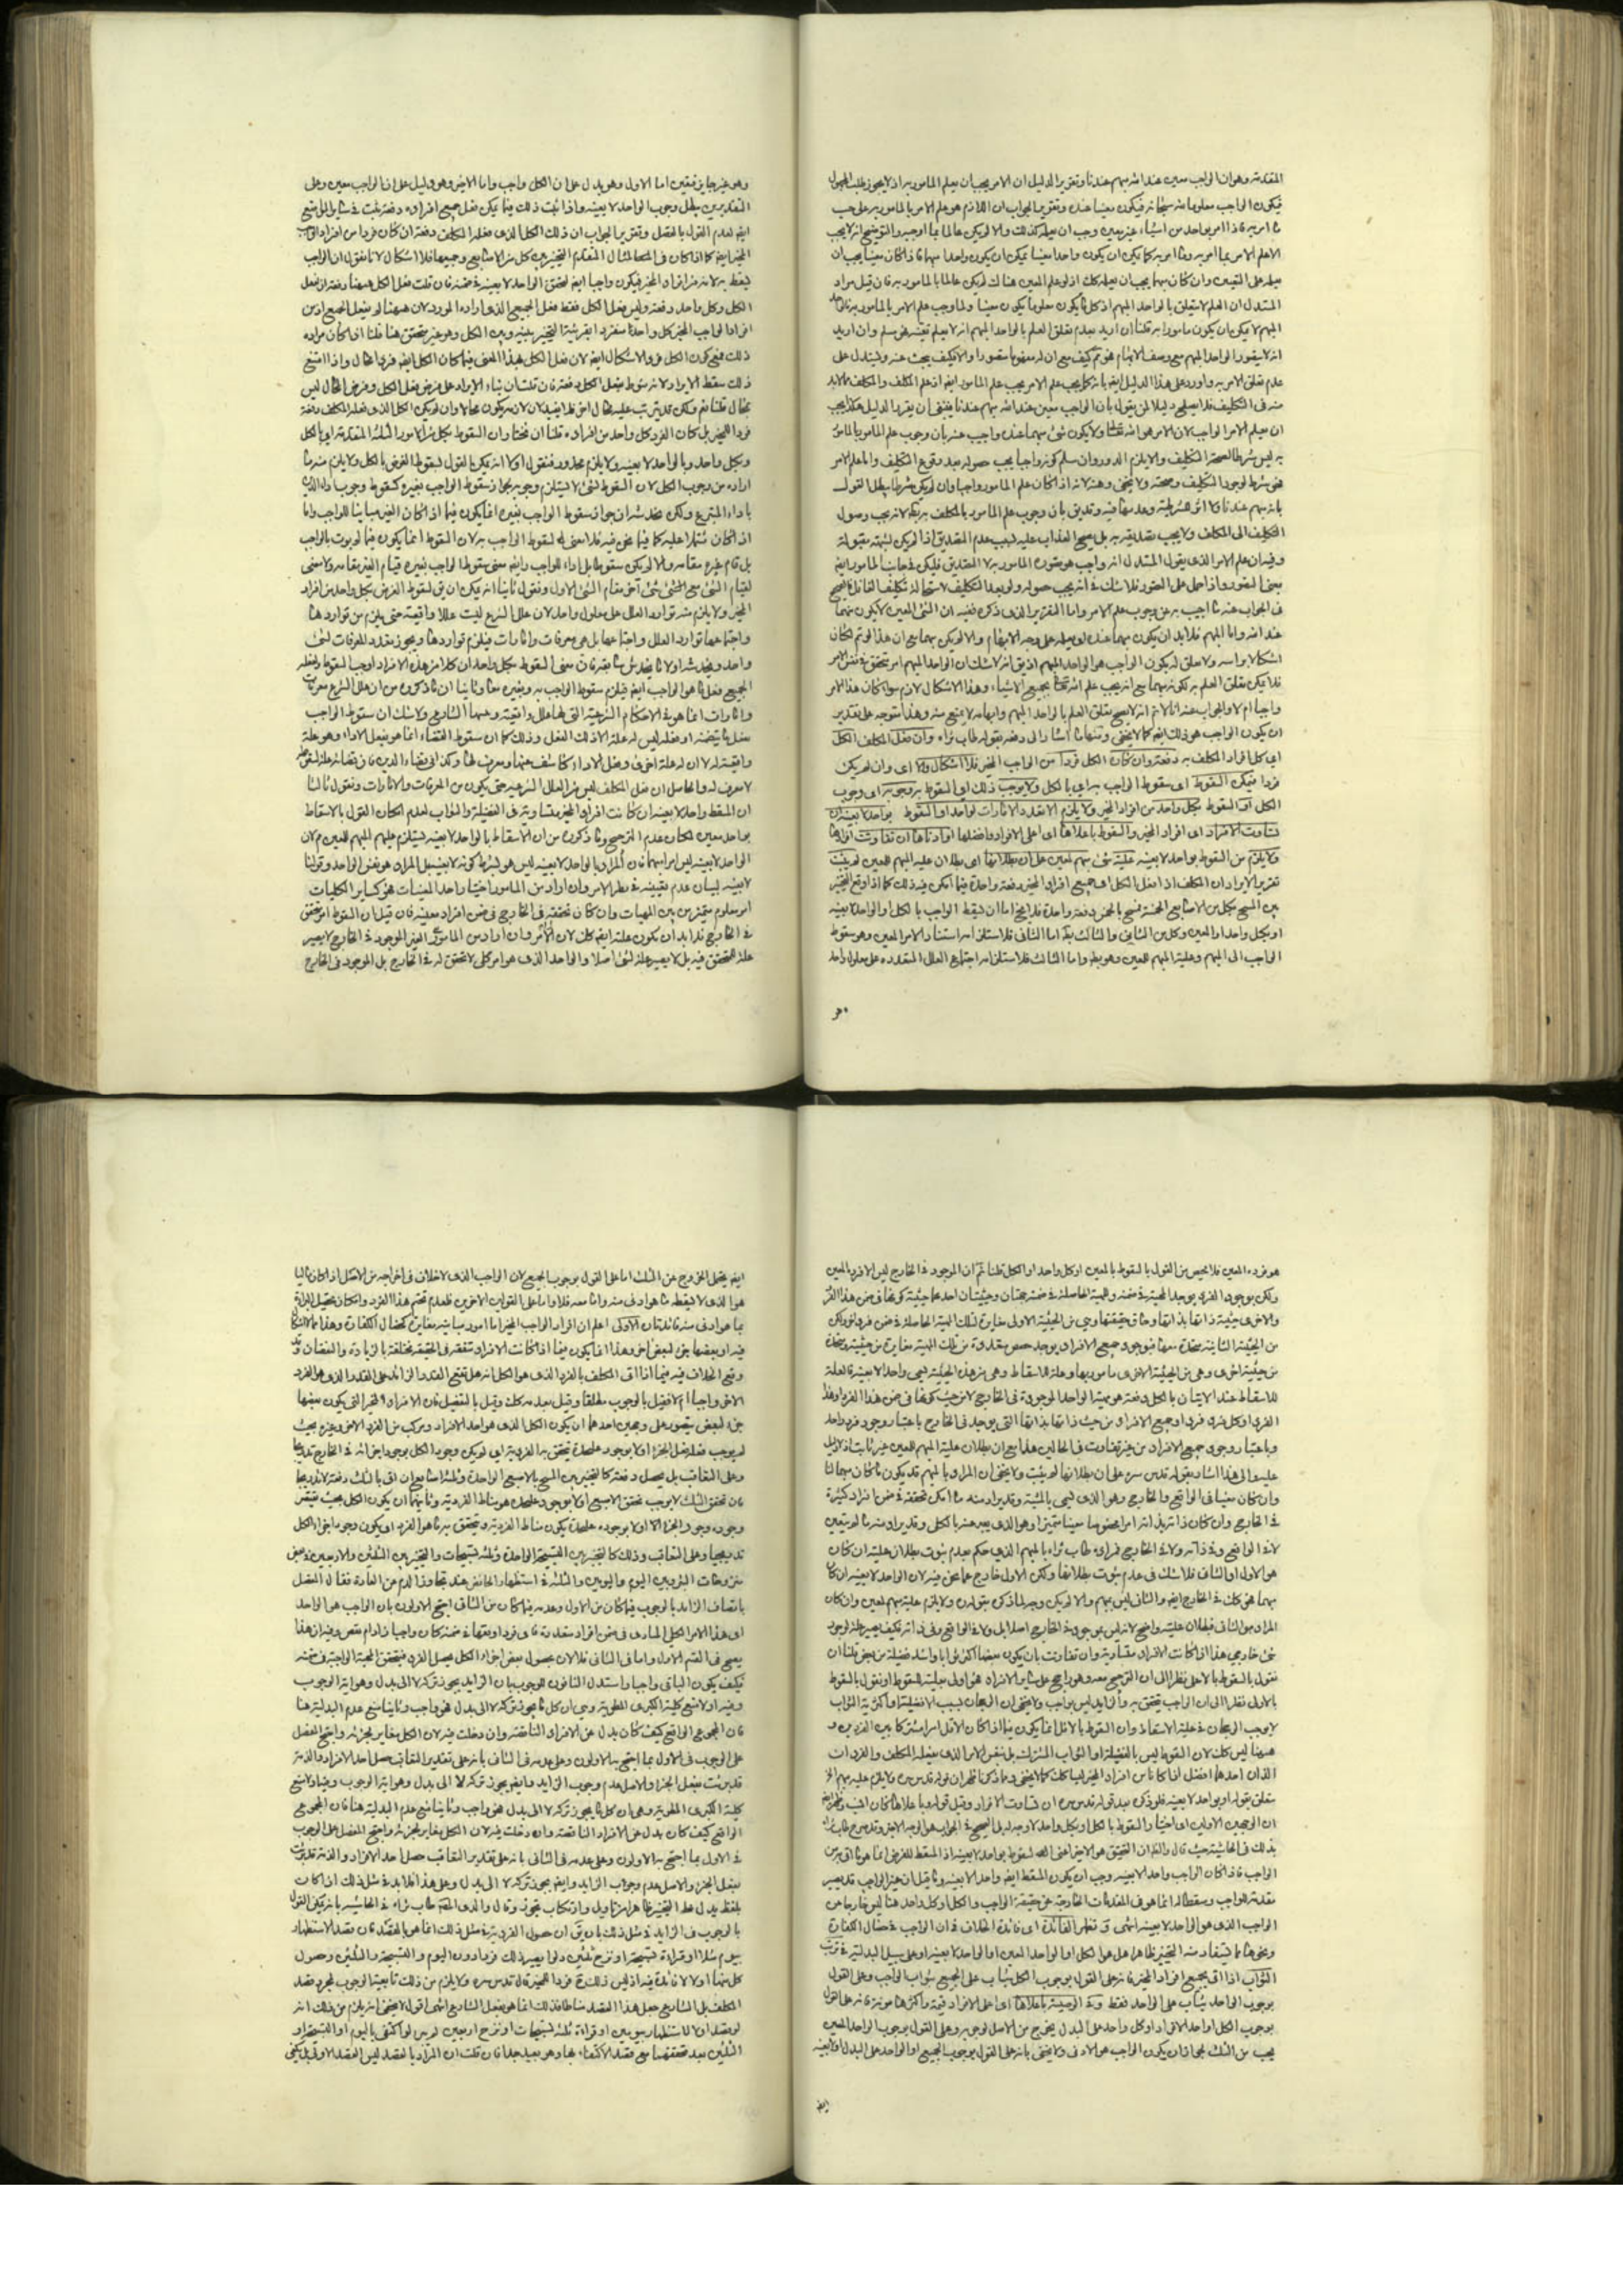 المقدمة وهو ان الواجب معين عند الله مبهم عندنا وتقرير الدليل ان الامر يجب ان يعلم المامور به اذ لا يجوز طلب المجهول
فيكون الواجب معلوما له سبحانه فيكون معينا عنده وتقرير الجواب ان اللازم هو علم الامر بالمامور به على حسب
ما امر به فاذا امر بواحد من اشياء غير معين وجب ان يعلمه كذلك والا لم يكن عالما بما اوجبه والتوضيح انه لا يجب
الا علم الامر بما امر به وما امر به كما يمكن ان يكون واحدا معينا يمكن ان يكون واحدا مبهما فاذا كان معينا يجب ان
يعلمه على التعيين وان كان مبهما يجب ان يعلمه كذلك اذ لو علم المعين هناك لم يكن عالما بالمامور به فان قيل مراد
المستدل ان العلم لا يتعلق بالواحد المبهم اذ كل ما يكون معلوما يكون معينا ولما وجب علم الامر بالمامور به فالواحد
المبهم لا يمكن ان يكون مامورا به قلنا ان اريد بعدم تعلق العلم بالواحد المبهم انه لا يعلم تعينه فهو مسلم وان اريد
انه لا يتصور الواحد المبهم مع وصف الابهام فهو ثم كيف مع ان له مفهوما متصورا والا فكيف يبحث عنه ويستدل على
عدم تعلق الامر به واورد على هذا الدليل ايضا بانه كما يجب علم الامر يجب علم المامور ايضا اذ علم المكلف والمكلف مما لا بد
منه في التكليف فلا يصلح دليلا لمن يقول بان الواجب معين عند الله مبهم عندنا ينبغي ان يقرر الدليل هكذا يجب
ان يعلم الامر الواجب لان الامر هو الله تعالى ولا يكون شئ مبهما عنده واجيب عنه بان وجوب علم المامور بالمامور
به ليس شرطا لصحة التكليف والا يلزم الدور وان سلم كونه واجبا يجب حصوله بعد وقوع التكليف واما علم الامر
فهو شرط لوجود التكليف وصحته ولا يخفى وهنه لانه اذا كان علم المامور واجبا وان لم يكن شرطا يبطل القول
بانه مبهم عندنا فلا اثر لشرطيته وعدمها فيه
التكليف الى المكلف ولا يجب تصديقه به بل يصح العذاب عليه بسبب عدم التصديق اذا لم يكن لشبهة مقبولة
وفيه ان علم الامر الذي يقول المستدل انه واجب هو تصوره المامور به لا التصديق فليكن في جانب المامور ايضا
بمعنى التصور واذا حمل على التصور فلا شك في انه يجب حصوله ولو بعد التكليف لاستحالة تكليف الغافل فالصحيح
في الجواب عنه ما اجيب به عن وجوب علم الامر واما التقرير الذي ذكره ففيه ان الشئ المعين لا يكون مبهما
عند الله واما المبهم فلا بد ان يكون مبهما عنده ليعلمه على وجه الابهام والا لم يكن مبهما مع ان هذا لو تم لكان
اشكالا براسه ولا تعلق له بكون الواجب هو الواحد المبهم اذ يق انه لا شك ان الواحد المبهم امر متحقق في نفس الامر
فلا يمكن تعلق العلم به لكونه مبهما مع انه يجب علم الله تعالى بجميع الاشياء وهذا الاشكال لازم سواء كان هذا الامر
واجبا ام لا والجواب عنه انا لا نم انه لا يصح تعلق العلم بالواحد المبهم وابهامه لا يمنع منه وهذا متوجه على تقدير
ان يكون الواجب هو ذلك ايضا كما لا يخفى ومنها ما اشار الى دفعه بقوله طاب ثراه وان فعل المكلف الكل
اي كل افراد المكلف به دفعة وان كان الكل فردا من الواجب المخير فلا اشكال والا اي وان لم يكن
فردا فيمكن السقوط اي سقوط الواجب به اي بالكل ولا يوجب ذلك اي السقوط به وجوبه اي وجوب
الكل او السقوط بكل واحد من افراد المخير ولا يلزم الا تعدد الامارات لواحد او السقوط بواحد لا بعينه ان
تساوت الافراد اي افراد المخير والسقوط باعلاها اي اعلى الافراد وافضلها او ادناها ان تفاوتت افرادها
ولا يلزم من السقوط بواحد لا بعينه علية شئ مبهم لمعين على ان بطلانها اي بطلان علية المبهم للمعين لم يثبت
تقرير الايراد ان المكلف اذا فعل الكل اي جميع افراد المخير دفعة واحدة فيما امكن فيه ذلك كما اذا وقع التخيير
بين المسح بكل من الاصابع الخمسة فمسح بالخمس دفعة واحدة فلا يخ اما ان يسقط الواجب بالكل او الواحد لا بعينه
او بكل واحد او المعين وكل من الثاني والثالث بط اما الثاني فلاستلزامه استناد الامر المعين وهو سقوط
الواجب الى المبهم وعلية المبهم للمعين وهو بط واما الثالث فلاستلزامه اجتماع العلل المتعددة على معلول واحد
وهو
وهو غير جايز فتعين اما الاول وهو يدل على ان الكل واجب واما الاخير وهو دليل على ان الواجب معين وعلى
التقديرين يبطل وجوب الواحد لا بعينه واذا ثبت ذلك فيما يمكن فعل جميع افراده دفعة ثبت في سائر المواضع
ايضا لعدم القول بالفصل وتقرير الجواب ان ذلك الكل الذي فعله المكلف دفعة ان كان فردا من افراد الواجب
المخير ايضا كما اذا كان في المثال المتقدم التخيير بين كل من الاصابع وجميعها فلا اشكال لانا نقول ان الواجب
يسقط به لانه من افراد المخير فيكون واجبا ايضا لتحقق الواحد لا بعينه في ضمنه فان قلت فعل الكل ههنا دفعة
الكل وكل واحد دفعة وليس فعل الكل فقط فعل الجميع الذي اراده المورد لان ههنا لو فعل الجميع اذ من
افراد الواجب المخير كل واحد منفردا بقرينة التخيير بينه وبين الكل وهو غير متحقق هنا قلنا اذا كان مراده
ذلك فمع كون الكل فردا لا اشكال ايضا لان فعل الكل هذا المعنى فيما كان الكل ايضا فردا محال واذا امتنع
ذلك سقط الايراد لانه منوط بفعل الكل دفعة فان قلت ان بناء الايراد على فرض فعل الكل وفرض المحال ليس
بمحال قلنا نعم ولكن قد يترتب عليه محال اخر
فردا للمخير بل كان الفرد كل واحد من افراده قلنا ان نختار ان السقوط بكل من الامور الثلثة المتقدمة اي بالكل
وبكل واحد وبالواحد لا بعينه ولا يلزم محذور فنقول اولا انه يمكن القول بسقوط الفرض بالكل ولا يلزم منه ما
اراده من وجوب الكل لان السقوط لشئ لا يستلزم وجوبه لجواز سقوط الواجب بغيره كسقوط وجوب اداء الدين
باداء المتبرع ولكن يخدشه ان جواز سقوط الواجب بغيره انما يكون فيما اذا كان الغير مباينا للواجب واما
اذا كان مشتملا عليه كما فيما نحن فيه فلا معنى له لسقوط الواجب به لان السقوط انما يكون فيما لم يؤت بالواجب
بل قام غيره مقامه والا لم يكن سقوطا بل اداء للواجب وايضا معنى سقوط الواجب بغيره قيام الغير مقامه ولا معنى
لقيام الشئ مع الشئ آخر مقام الشئ الاول ونقول ثانيا انه يمكن ان يق بسقوط الفرض بكل واحد من افراد
المخير ولا يلزم منه توارد العلل على معلول واحد لان علل الشرع ليست عللا واقعية حتى يلزم من تواردها
واجتماعها توارد العلل واجتماعها بل هي معرفات وامارات فيلزم تواردها ويجوز تعدد المعرفات لشئ
واحد ويخدشه
الجميع فعل ما هو الواجب ايضا فيلزم سقوط الواجب به وبغيره معا وثانيا ان ما ذكروه من ان علل الشرع معرفات
وامارات انما هو في الاحكام الشرعية التي لها علل واقعية وعينها الشارع ولا شك ان سقوط الواجب
بفعل ما يتضمنه او مثله ليس له علة الا ذلك الفعل وذلك كما ان سقوط القضاء انما هو بفعل الاداء وهو علة
واقعية له لا ان له علة اخرى وفعل الاداء كاشف عنها ومعرف لها وكذا في قضاء الدين فان قضائه علة لسقوطه
لا معرف له والحاصل ان فعل المكلف ليس من العلل الشرعية حتى يكون من المعرفات والامارات ونقول ثالثا
ان المسقط واحد لا بعينه ان كانت افراد المخير متساوية في الفضيلة والثواب لعدم امكان القول بالاسقاط
بواحد معين لمكان عدم الترجيح وما ذكروه من ان الاسقاط بالواحد لا بعينه يستلزم علية المبهم للمعين م لان
الواحد لا بعينه ليس امرا مبهما فان المراد بالواحد لا بعينه ليس هو بشرط كونه لا بعينه بل المراد هو نفس الواحد وقولنا
لا بعينه لبيان عدم تعيينه في نظر الامر وان اراد من المامور اختيار واحد المعينات فهو كساير الكليات
امر معلوم متميز من بين المهيات وان كان تحققه في الخارج في ضمن افراد معينة فان قيل ان السقوط امر متحقق
في الخارج فلا بد ان يكون علته ايضا كذلك لان
علة للمتحقق فيه بل لا يصير علة لشئ اصلا والواحد الذي هو امر كلي لا تحقق له في الخارج بل الموجود في الخارج
هو فرده المعين فلا محيص من القول بالسقوط بالمعين او كل واحد او الكل قلنا نم ان الموجود في الخارج ليس الا فرد المعين
ولكن بوجود الفرد يوجد المهية في ضمنه وللمهية الحاصلة في ضمنه جهتان وحيثيتان احدهما حيثية كونها في ضمن هذا الفرد
والاخرى حيثية ذاتها بذاتها وحاق حقيقتها وهي من الحيثية الاولى مغايرة لتلك المهية الحاصلة في ضمن فرد اخر ولكن
من الحيثية الثانية متحدة معها فبوجود جميع الافراد يوجد حصص متعددة من تلك المهية متغايرة من حيثية ومتحدة
من حيثية اخرى وهي من الحيثية الاخرى مامور بها وعلة للاسقاط وهي من هذه الحيثية يسمى واحدا لا بعينه فالعلة
للاسقاط عند الاتيان بالكل دفعة هو مهية الواحد الموجودة في الخارج لا من حيث كونها في ضمن هذا الفرد وهذا
الفرد او كل فرد فرد او جميع الافراد من حيث ذاتها بذاتها التي يوجد في الخارج باعتبار وجود فرد واحد
وباعتبار وجود جميع الافراد من غير تفاوت في الحالين هذا مع ان بطلان علية المبهم للمعين غير ثابت اذ لا دليل
عليه والى هذا اشار بقوله قدس سره على ان بطلانها لم يثبت ولا يخفى ان المراد بالمبهم قد يكون ما كان مبهما لنا
وان كان معينا في الواقع والخارج وهو الذي يسمى بالمشتبه وقد يراد منه ما امكن تحققه في ضمن افراد كثيرة
في الخارج وان كان ذاته بذاته امرا محصلا معينا متميزا وهو الذي يعبر عنه بالكلي وقد يراد منه ما لم يتعين
لا في الواقع وفي ذاته ولا في الخارج فمراده طاب ثراه بالمبهم الذي حكم بعدم ثبوت بطلان عليته ان كان
هو الاول او الثاني فلا شك في عدم ثبوت بطلانها ولكن الاول خارج عما نحن فيه لان الواحد لا بعينه ان كان
مبهما فهو كذلك في الخارج ايضا والثاني ليس بمبهم والا لم يكن وجه لما ذكره بقوله ولا يلزم علية مبهم لمعين وان كان
المراد هو الثالث فبطلان عليته واضح لانه ليس بموجود في الخارج اصلا بل ولا في الواقع وفي ذاته فكيف يصير علة لوجود
شئ خارجي هذا اذا كانت الافراد متساوية وان تفاوتت بان يكون بعضها اكثر ثوابا واشد فضيلة من بعض قلنا ان
نقول بالسقوط بالاعلى نظرا الى ان الترجيح معه وهو راجح على سائر الافراد فهو اولى بعلية السقوط او نقول بالسقوط
بالادنى نظرا الى ان الواجب يتحقق به والزايد ليس بواجب ولا يخفى ان الرجحان بسبب الافضلية او اكثرية الثواب
لا يوجب الرجحان في علية الاسقاط وان السقوط بالاقل انما يكون فيما اذا كان الاقل امرا مشتركا بين الفردين و
ههنا ليس كذلك لان السقوط ليس بالفضيلة او الثواب المشترك بل بنفس الامر الذي يفعله المكلف والفردان
اللذان احدهما افضل اذا كانا من افراد المخير ليسا كذلك كما لا يخفى ومما ذكرنا ظهر ان قوله قدس سره ولا يلزم علية مبهم الخ
متعلق بقوله او بواحد لا بعينه فلو ذكره بعد قوله قدس سره ان تساوت الافراد وقبل قوله وباعلاها كان انسب وظهر ايضا
ان الوجهين الاولين اي اختيار السقوط بالكل او بكل واحد لا وجه لهما فالصحيح في الجواب هو الوجه الاخير وقد صرح طاب ثراه
بذلك في الحاشية حيث قال والظ ان التحقيق هو الاخير اعنى السقوط بواحد لا بعينه اذ المسقط للفرض انما هو ما اتى به من
الواجب فاذا كان الواجب واحد لا بعينه وجب ان يكون المسقط ايضا واحد لا بعينه وما قيل ان غير الواجب قد يصير
مقدمة لواجب ومسقطا له انما هو في المقدمات الخارجة عن حقيقة الواجب والكل او كل واحد هنا ليس خارجا عن
الواجب الذي هو الواحد لا بعينه انتهى وتظهر الفائدة اي فائدة الخلاف في ان الواجب في خصال الكفارة
ونحوها مما يستفاد منه التخيير ظاهرا هل هو الكل او الواحد المعين او الواحد لا بعينه او على سبيل البدلية في ترتب
الثواب اذا اتى بجميع افراد المخير فانه على القول بوجوب الكل يثاب على الجميع ثواب الواجب وعلى القول
بوجوب الواحد يثاب على الواحد فقط وفي الوصية باعلاها اي اعلى الافراد قيمة واكثرها مؤنة فانه على القول
بوجوب الكل او احد الافراد او كل واحد على البدل يخرج من الاصل لوجوبه وعلى القول بوجوب الواحد المعين
يجب من الثلث لجواز ان يكون الواجب هو الادنى ولا يخفى بانه على القول بوجوب الجميع او الواحد على البدل او لا بعينه
ايضا
ايضا يحتمل الخروج عن الثلث اما على القول بوجوب الجميع لان الواجب الذي لا خلاف في اخراجه من الاصل اذا كان ماليا
هو الذي لا يسقطه ما هو ادنى منه واما معه فلا واما على القولين الاخرين فلعدم تحتم هذا الفرد وامكان تحصيل البرائة
بما هو ادنى منه فائدتان الاولى اعلم ان افراد الواجب المخير اما امور متباينة متغايرة كخصال الكفارة وهذا مما لا اشكال
فيه او بعضها جزء لبعض اخر وهذا انما يكون فيما اذا كانت الافراد متفقة في الحقيقة مختلفة بالزيادة والنقصان وقد
وقع الخلاف فيه فيما اذا اتى المكلف بالفرد الذي هو الكل انه هل تقع القدر الزائد على القدر الذي هو الفرد
الاخر واجبا ام لا فقيل بالوجوب مطلقا وقيل بعدمه كذلك وقيل بالتفصيل فان الافراد المخير التي يكون بعضها
جزء لبعض يتصور على وجهين احدهما ان يكون الكل الذي هو احد الافراد مركبا من الفرد الاخر وغيره بحيث
لم يوجب فعله فعل الجزء اولا بوجود علحدة يتحقق به الفردية اي لم يكن وجود الكل بوجود اجزائه في الخارج تدريجا
وعلى التعاقب بل يحصل دفعة كالتخيير بين المسح بالاصبع الواحدة وثلثة اصابع ان اتى بالثلث دفعة لا تدريجا
فان تحقق الثلث لا يوجب تحقق الاصبع اولا بوجود علحدة هو مناط الفردية وثانيهما ان يكون الكل بحيث يتضمن
وجوده وجود الجزء الاول اولا بوجوده علحدة يكون مناط الفردية ويتحقق به ما هو الفرد اي يكون وجود اجزاء الكل
تدريجيا وعلى التعاقب وذلك كالتخيير بين التسبيحة الواحدة وثلث تسبيحات والتخيير بين الثلثين والاربعين في بعض
منزوحات البئر وبين اليوم واليومين والثلثة في استظهار الحائض عند تجاوز الدم عن العادة فقال المفصل
باتصاف الزايد بالوجوب فيما كان من الاول وعدمه فيما كان من الثاني احتج الاولون بان الواجب هو الواحد
اي هذا الامر الكلي المتادى في ضمن افراد متعددة فاى فرد اوقعها في ضمنه كان واجبا زاد ام نقص وفيه ان هذا
يصح في القسم الاول واما في الثاني فلا لان بحصول بعض اجزاء الكل يحصل الفرد فيتحقق المهية الواجبة في ضمنه
فكيف يكون الباقي واجبا واستدل النافون للوجوب بان الزايد يجوز تركه لا الى بدل وهو اية الوجوب
وفيه اولا منع كلية الكبرى المطوية وهي ان كل ما يجوز تركه لا الى بدل فهو غير واجب وثانيا منع عدم البدلية هنا
فان المجموع الواقع كيف كان بدل عن الافراد الناقصة وان دخلت فيه لان الكل مغاير لجزئه واحتج المفصل
على الوجوب في الاول بما احتج به الاولون وعلى عدمه في الثاني بانه على تقدير التعاقب حصل احد الافراد والذمة
قد برئت بفعل الجزء والاصل عدم وجوب الزايد وايضا يجوز تركه لا الى بدل وهو اية الوجوب وفيه اولا منع
كلية الكبرى المطوية وهي ان كل ما يجوز تركه لا الى بدل فهو غير واجب وثانيا منع عدم البدلية هنا فان المجموع
الواقع كيف كان بدل عن الافراد الناقصة وان دخلت فيه لان الكل مغاير لجزئه واحتج المفصل على الوجوب
في الاول بما احتج به الاولون وعلى عدمه في الثاني بانه على تقدير التعاقب حصل احد الافراد والذمة قد برئت
بفعل الجزء والاصل عدم وجوب الزايد وايضا يجوز تركه لا الى بدل وعلى هذا فلا بد في مثل ذلك اذا كانت
بلفظ يدل على التخيير ظاهرا من تاويل وارتكاب تجوز وقال والدي العلامة طاب ثراه في الحاشية بانه يمكن القول
بالوجوب في الزايد في مثل ذلك بان يق ان حصول الفردية في مثل ذلك انما هو بالقصد فان قصد الاستظهار
بيوم مثلا او قراءة تسبيحة او نزح ثلثين دلوا يصير ذلك فردا دون اليوم والتسبيحة والثلثين وحصول
كل منهما اولا لا فائدة فيه اذ ليس ذلك فردا للمخير قال قدس سره ولا يلزم من ذلك تابعية الوجوب لمجرد قصد
المكلف بل الشارع جعل هذا القصد مناطا فذلك انما هو بفعل الشارع انتهى اقول لا يخفى انه يلزم من ذلك انه
لو قصد اولا الاستظهار بيومين او قراءة ثلثة تسبيحات او نزح اربعين لم يجز لو اكتفى باليوم او التسبيحة او
الثلثين بعد تحققها مع قصد الاكتفاء بها وهو بعيد جدا فان قلت ان المراد بالقصد ليس القصد الاول بل يكفي